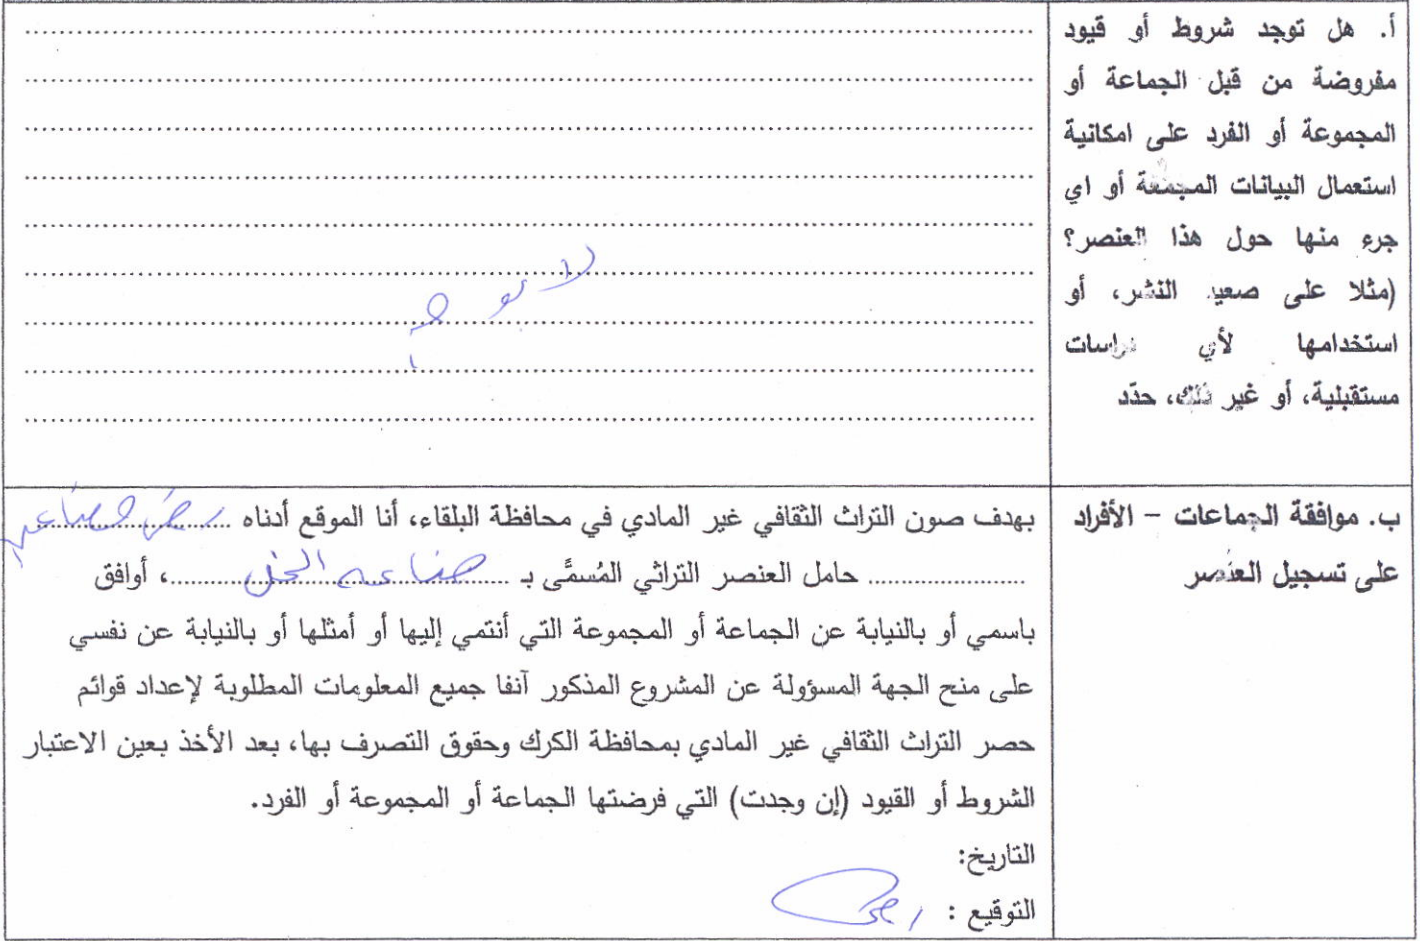 أ. هل توجد شروط أو قيود
مفروضة من قبل الجماعة أو
المجموعة أو الفرد على امكانية
استعمال البيانات المجمعة أو اي
جرء منها حول هذا العنصر؟
(مثلا على صعيد النشر، أو
استخدامها لأي دراسات
مستقبلية، أو غير ذلك، حدّد
لا يوجد
ب. موافقة الجماعات – الأفراد
على تسجيل العنصر
بهدف صون التراث الثقافي غير المادي في محافظة البلقاء، أنا الموقع أدناه
حامل العنصر التراثي المُسمَّى بـ صناعه الخل، أوافق
باسمي أو بالنيابة عن الجماعة أو المجموعة التي أنتمي إليها أو أمثلها أو بالنيابة عن نفسي
على منح الجهة المسؤولة عن المشروع المذكور آنفا جميع المعلومات المطلوبة لإعداد قوائم
حصر التراث الثقافي غير المادي بمحافظة الكرك وحقوق التصرف بها، بعد الأخذ بعين الاعتبار
الشروط أو القيود (إن وجدت) التي فرضتها الجماعة أو المجموعة أو الفرد.
التاريخ:
التوقيع :